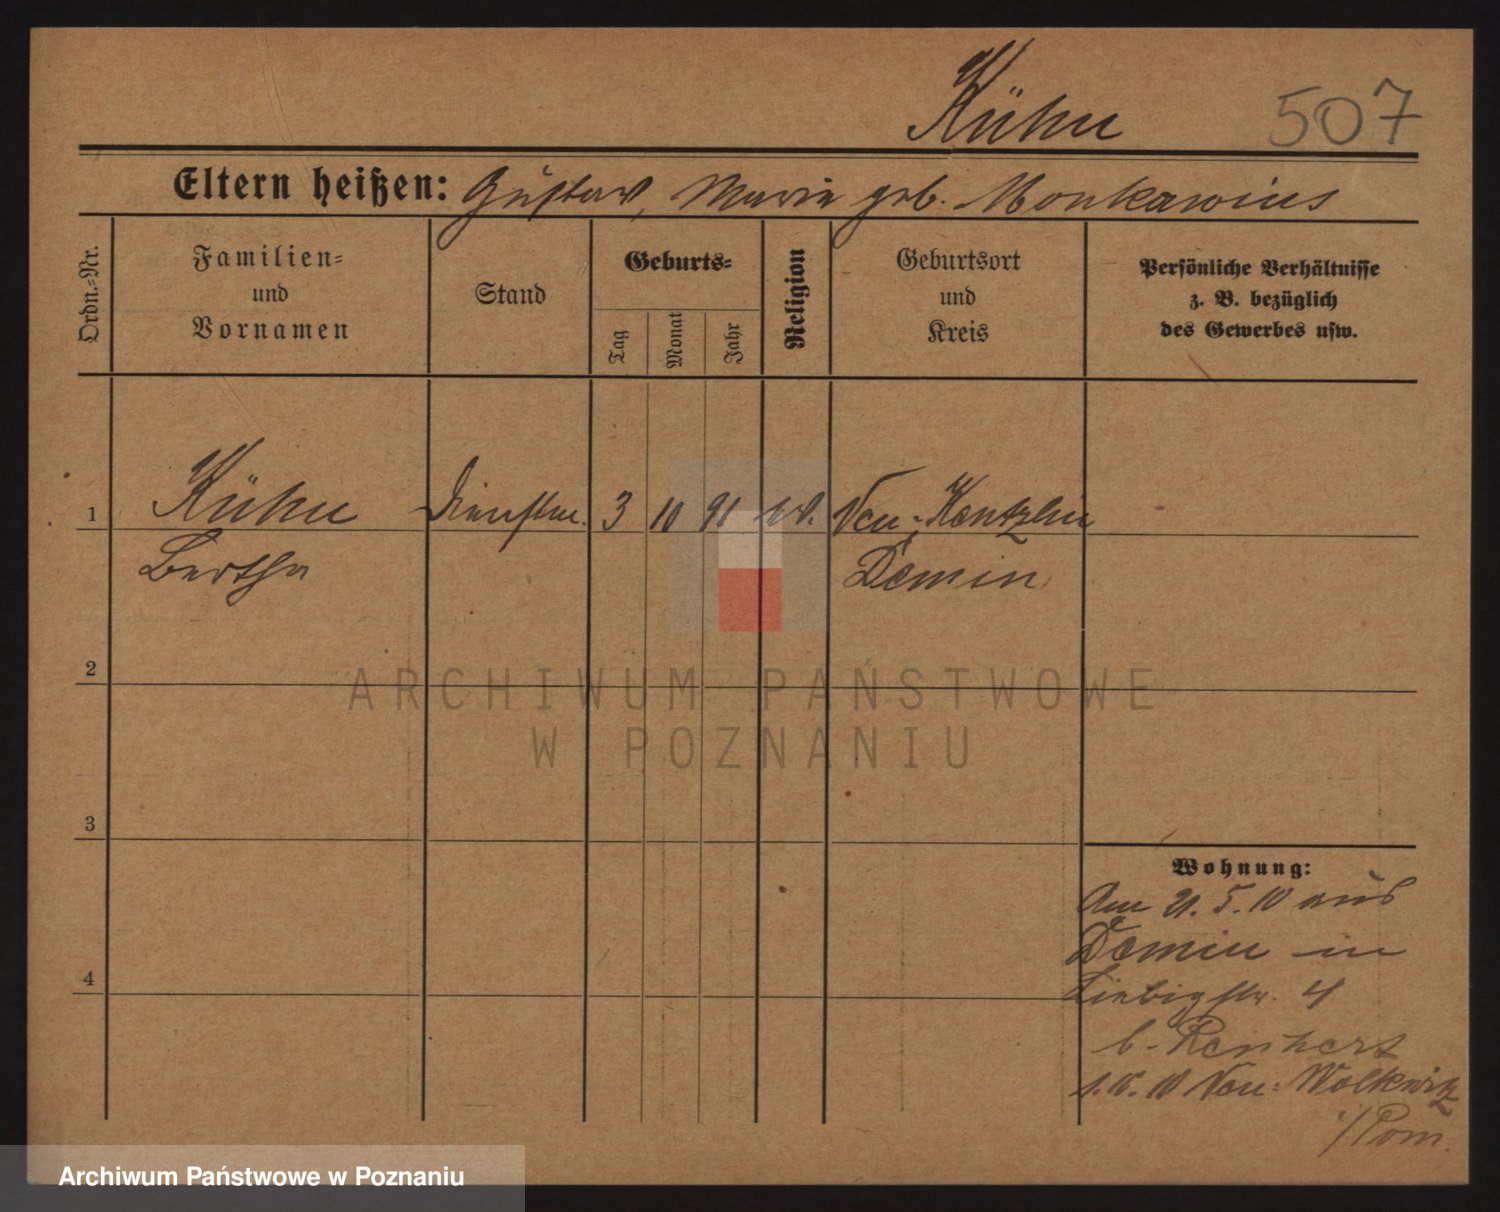 Kühn 507
Eltern heißen: Gustav, Marie geb. Monkawius
Ordn.-Nr.
Familien- und Vornamen
Stand
Geburts-
Tag
Monat
Jahr
Religion
Geburtsort und Kreis
Persönliche Verhältnisse
z. B. bezüglich
des Gewerbes usw.
1 Kühn Dienstm. 3 10 91 ev. Neu-Kentzlin
Bertha Demin
2
3
4
Wohnung:
Am 21.5.10 aus
Demin in
Liebigstr. 4
b.
Neu-Wolkwitz
i/Pom.
ARCHIWUM PAŃSTWOWE
W POZNANIU
Archiwum Państwowe w Poznaniu